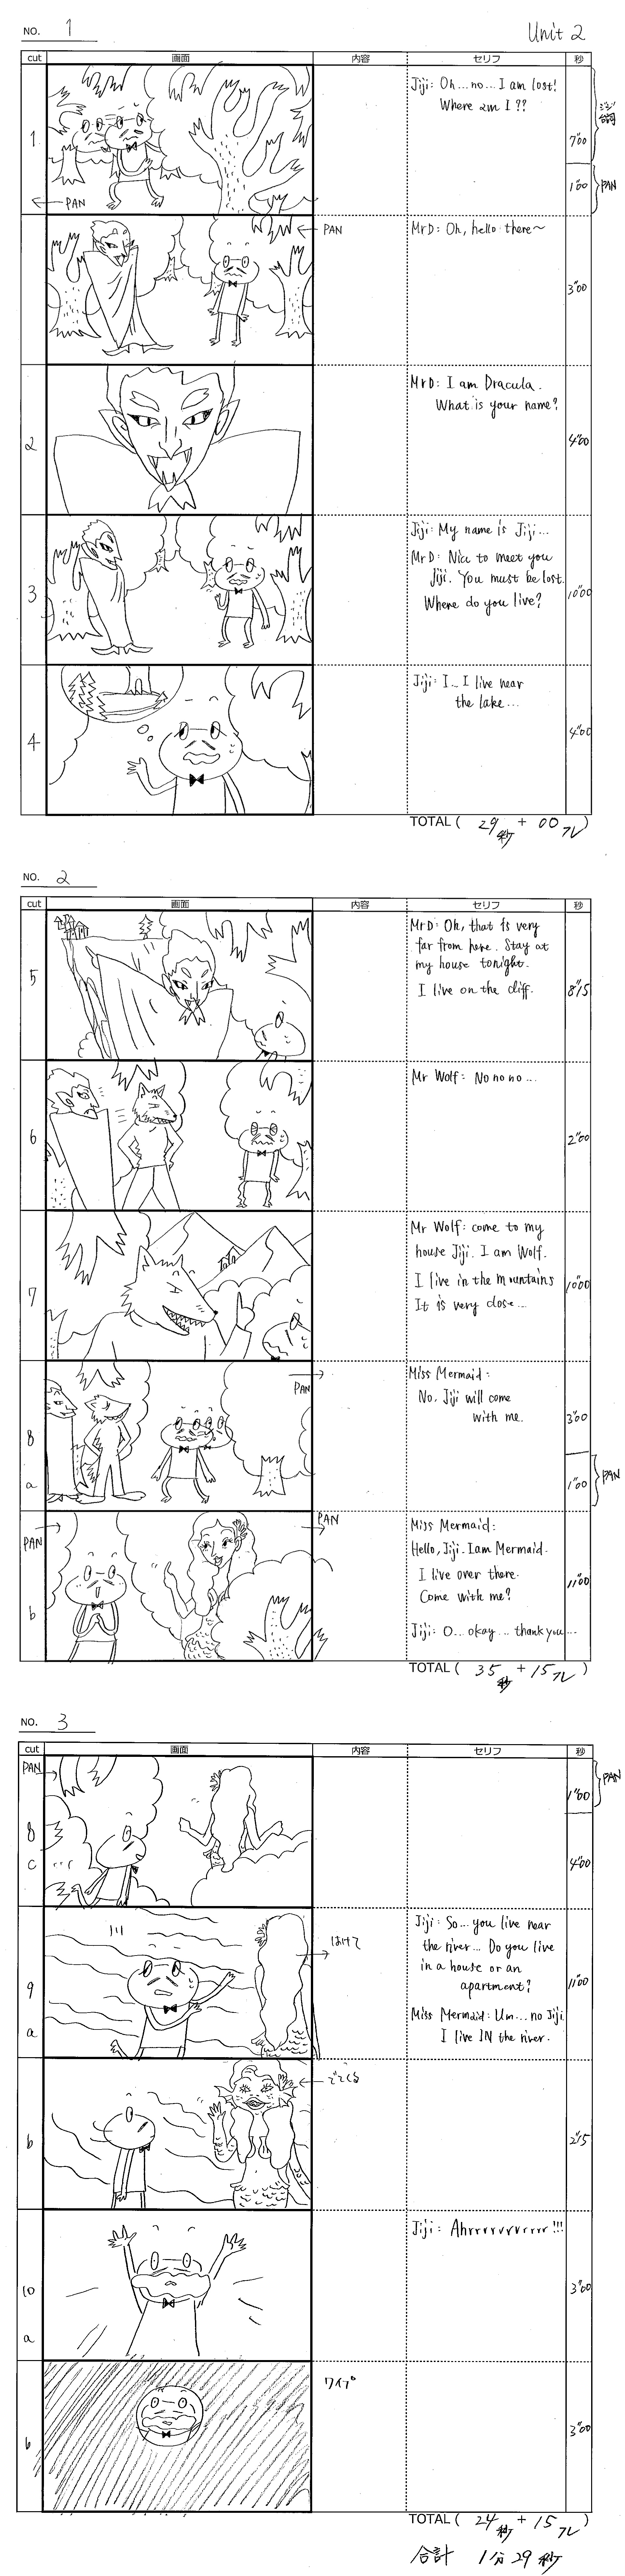 NO. 1
Unit 2
cut 画面 内容 セリフ 秒
1
← PAN
Jiji: Oh...no...I am lost!
Where am I??
7"00
1"00
PAN
← PAN
MrD: Oh, hello there~
3"00
2
MrD: I am Dracula.
What is your name?
4"00
3
Jiji: My name is Jiji...
MrD: Nice to meet you
Jiji. You must be lost.
Where do you live?
10"00
4
Jiji: I... I live near
the lake...
4"00
TOTAL ( 29秒 + 00フレ )
NO. 2
cut 画面 内容 セリフ 秒
5
MrD: Oh, that is very
far from here. Stay at
my house tonight.
I live on the cliff.
8"15
6
Mr Wolf: No no no...
2"00
7
Mr Wolf: come to my
house Jiji. I am Wolf.
I live in the mountains
It is very close...
10"00
8
a
PAN →
Miss Mermaid:
No. Jiji will come
with me.
3"00
1"00
PAN
b
PAN →
PAN →
Miss Mermaid:
Hello, Jiji. I am Mermaid.
I live over there.
Come with me?
Jiji: O... okay... thank you...
11"00
TOTAL ( 35秒 + 15フレ )
NO. 3
cut 画面 内容 セリフ 秒
PAN →
8
c
1"00
PAN
4"00
9
a
川
はけて
Jiji: So...you live near
the river... Do you live
in a house or an
apartment?
Miss Mermaid: Um...no Jiji.
I live IN the river.
11"00
b
← でてくる
2"15
10
a
Jiji: Ahrrrrrrrrrrr!!!
3"00
b
ワイプ
3"00
TOTAL ( 24秒 + 15フレ )
合計 1分29秒